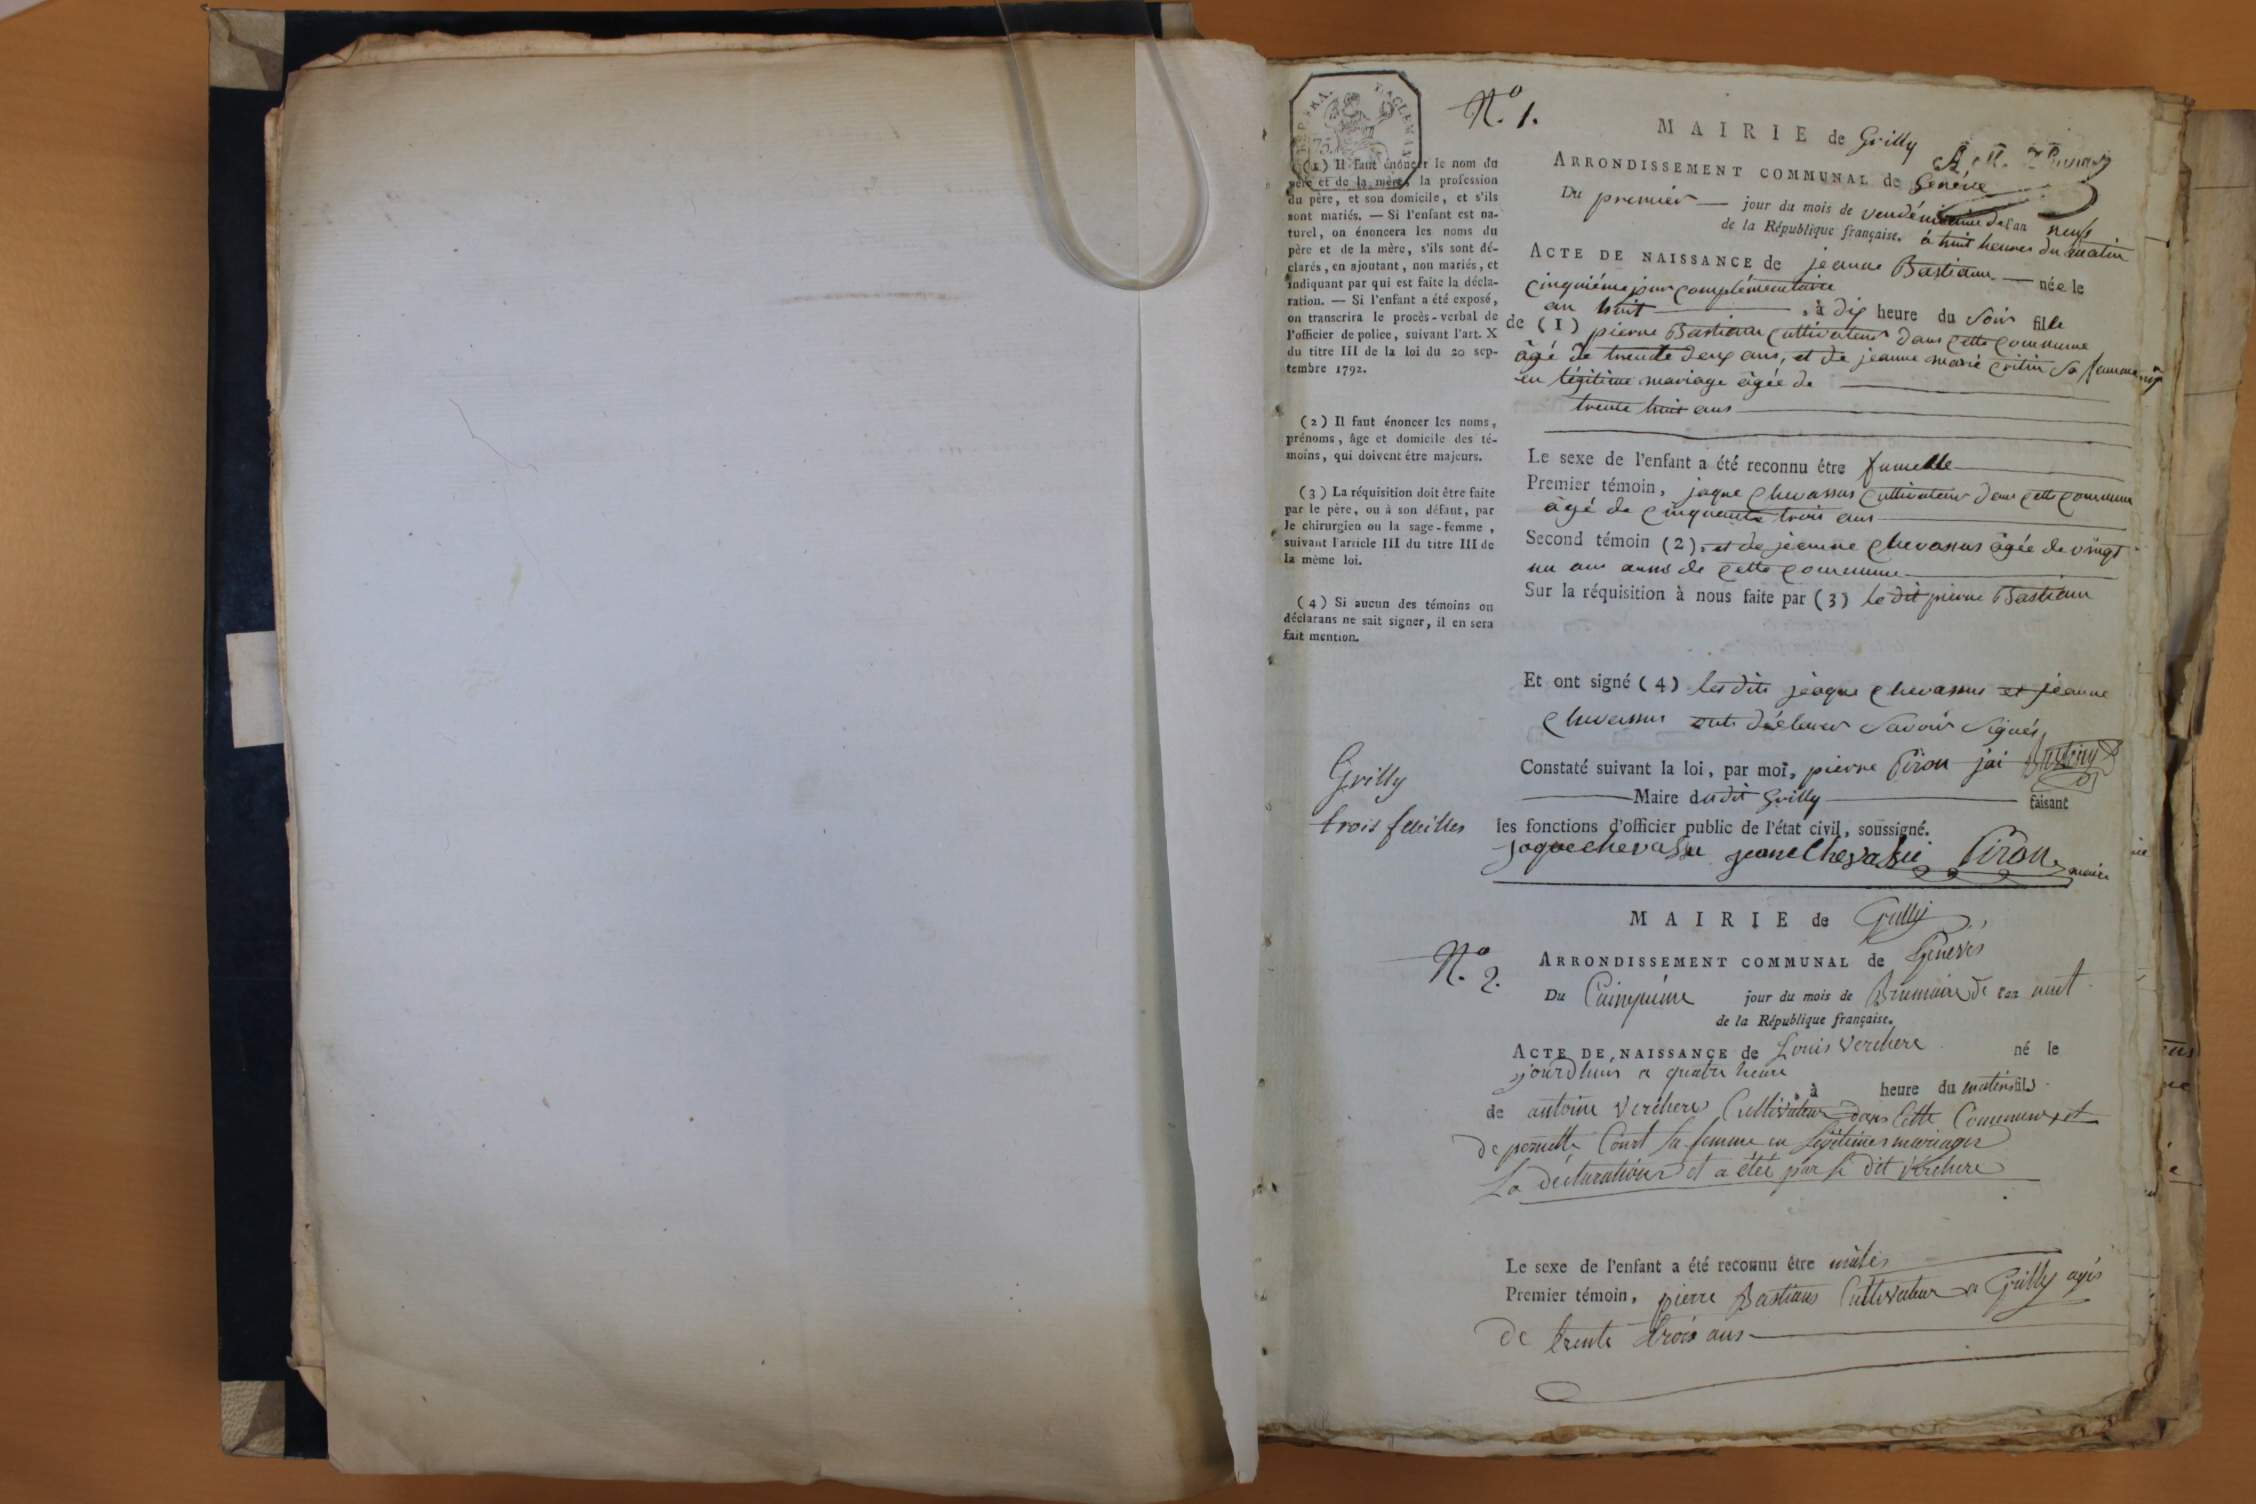 N.o 1.
MAIRIE de Grilly
ARRONDISSEMENT COMMUNAL de Genève
Du premier jour du mois de vendémiaire de l'an neuf
de la République française. à huit heures du matin
ACTE DE NAISSANCE de jeanne Bastian née le
cinquième jour complémentaire
an huit , à dix heure du soir fille
de (1) pierre Bastian cultivateur dans cette commune
âgé de trente deux ans, et de jeanne marie sa femme
en légitime mariage âgée de
trente huit ans
Le sexe de l'enfant a été reconnu être fumelle
Premier témoin, jaque Chevassus cultivateur dans cette commune
âgé de cinquante trois ans
Second témoin (2), et de jeanne Chevassus âgée de vingt
un ans de cette commune
Sur la réquisition à nous faite par (3) le dit pierre Bastian
Et ont signé (4) les dits jaque Chevassus et jeanne
Chevassus ont déclarer savoir signés
Constaté suivant la loi, par moi, pierre Piron jai
Maire du dit Grilly faisant
les fonctions d'officier public de l'état civil, soussigné.
jaque chevassu jeane Chevassu Piron maire
(1) Il faut énoncer le nom du
père et de la mère, la profession
du père, et son domicile, et s'ils
sont mariés. — Si l'enfant est na-
turel, on énoncera les noms du
père et de la mère, s'ils sont dé-
clarés, en ajoutant, non mariés, et
indiquant par qui est faite la décla-
ration. — Si l'enfant a été exposé,
on transcrira le procès-verbal de
l'officier de police, suivant l'art. X
du titre III de la loi du 20 sep-
tembre 1792.
(2) Il faut énoncer les noms,
prénoms, âge et domicile des té-
moins, qui doivent être majeurs.
(3) La réquisition doit être faite
par le père, ou à son défaut, par
le chirurgien ou la sage-femme,
suivant l'article III du titre III de
la même loi.
(4) Si aucun des témoins ou
déclarans ne sait signer, il en sera
fait mention.
Grilly
trois feuilles
MAIRIE de Grilly
N.o 2.
ARRONDISSEMENT COMMUNAL de Genéve
Du Cinquiéme jour du mois de Brumaire de l'an
de la République française.
ACTE DE NAISSANCE de Louis Verchere né le
jourdhuis a quatre heure
, à heure du matin fils
de antoine Verchere Cultivateur dans Cette Commune et
de pernette Court sa femme en légitimes mariages
La déclaration et a été par le dit Verchere
Le sexe de l'enfant a été reconnu être mâles
Premier témoin, pierre Bastians Cultivateur a Grilly agés
de trente trois ans